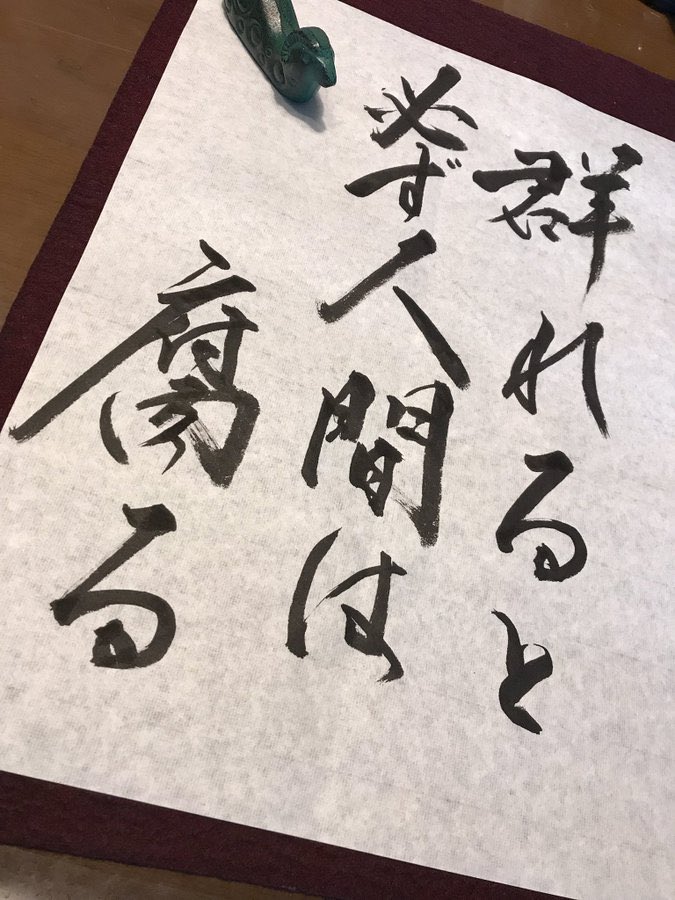 群れると
必ず人間は
腐る